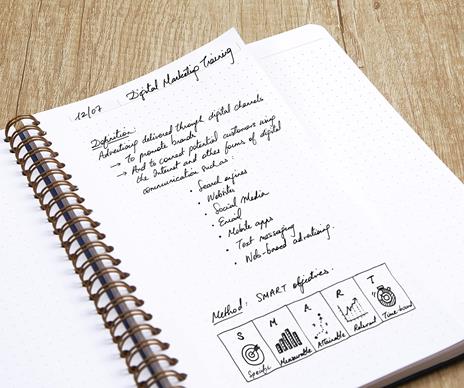 12/07
Digital Marketing Training
Definition:
Advertising delivered through digital channels
→ To promote brands
→ And to connect potential customers using
the Internet and other forms of digital
communication such as:
• Search engines
• Websites
• Social Media
• Email
• Mobile apps
• Text messaging
• Web-based advertising.
Method: SMART objectives.
S M A R T
Specific Measurable Attainable Relevant Time-based